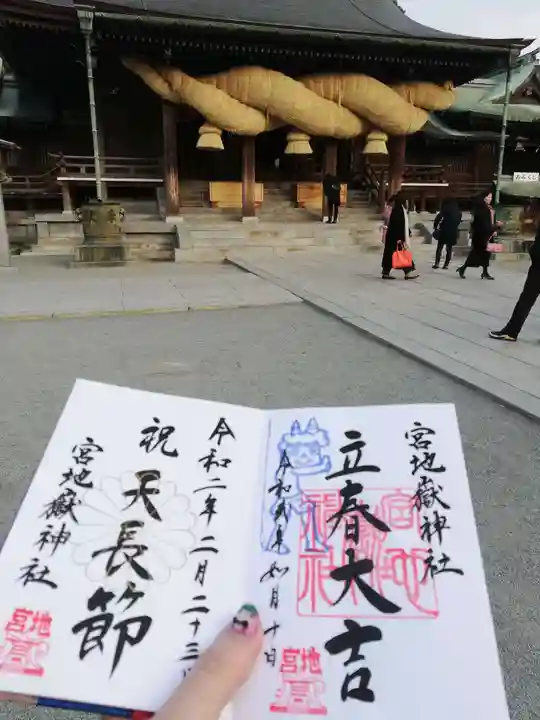 おみくじ
宮地嶽神社
立春大吉
令和弐年如月十日
宮地嶽神社
宮地
令和二年二月二十三日
祝
天長節
宮地嶽神社
宮地